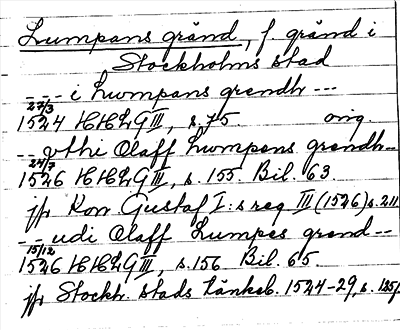 Lumpans gränd, f. gränd i
Stockholms stad
--- i Lwmpans grendh ---
27/3
1524 HHLG III, s. 75. orig.
-- vthi Olaff Lwmpens grendh --
24/7
1526 HHLG III, s. 155. Bil. 63.
jfr Kon Gustaf I:s reg III (1526) s. 211
--- udi Olaff Lumpes grend --
15/12
1526 HHLG III, s. 156 Bil. 65.
jfr Stockh. stads tänkeb. 1524-29, s. 125